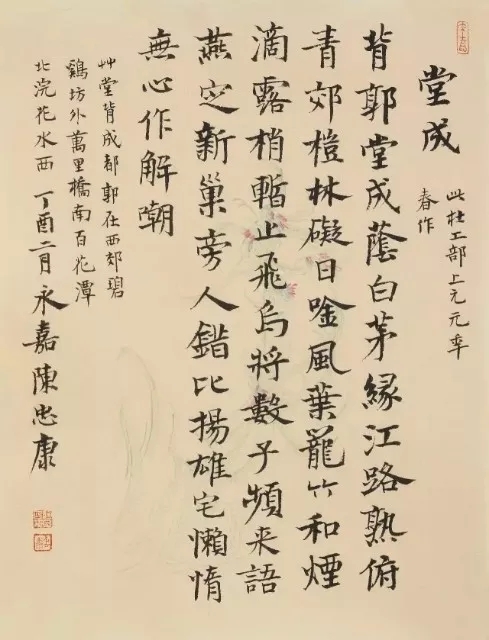 堂成
此杜工部上元元年
春作
背郭堂成蔭白茅緣江路熟俯
青郊榿林礙日唫風葉籠竹和煙
滴露梢暫止飛烏將數子頻来語
燕定新巢旁人錯比揚雄宅懶惰
無心作解嘲
艸堂背成都郭在西郊碧
鷄坊外萬里橋南百花潭
北浣花水西丁酉二月永嘉陳忠康